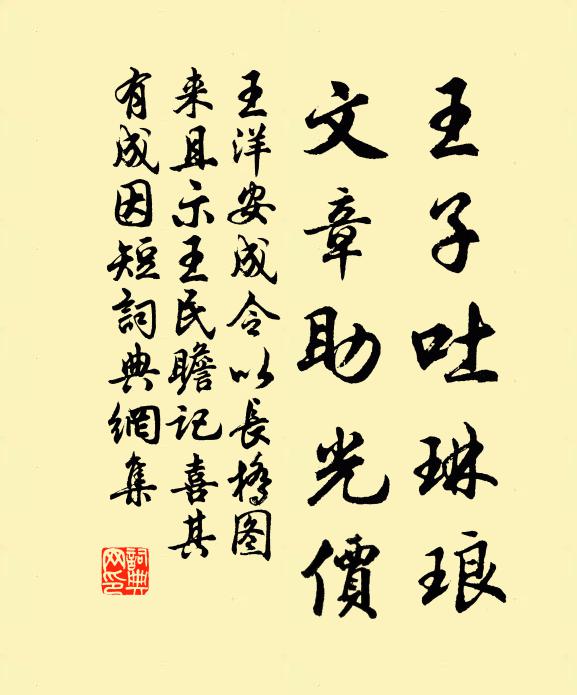 王子吐琳琅
文章助光價
王洋安成令以長橋图
来且示王民瞻記喜其
有成因短詞典網集
詞典网印